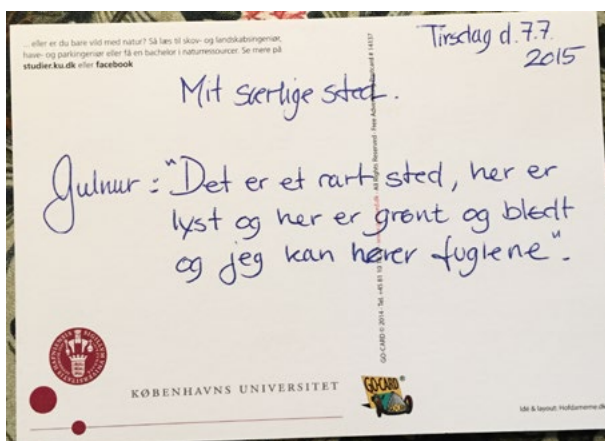 ... eller er du bare vild med natur? Så læs til skov- og landskabsingeniør,
have- og parkingeniør eller få en bachelor i naturressourcer. Se mere på
studier.ku.dk eller facebook
Tirsdag d. 7.7.
2015
Mit særlige sted.
Gulnur: "Det er et rart sted, her er
lyst og her er grønt og blødt
og jeg kan hører fuglene".
GO-CARD © 2014 · Tel. +45 · All Rights Reserved · Free Postcard # 14137
KØBENHAVNS UNIVERSITET
GO-CARD
Idé & layout: Hofdamerne.dk